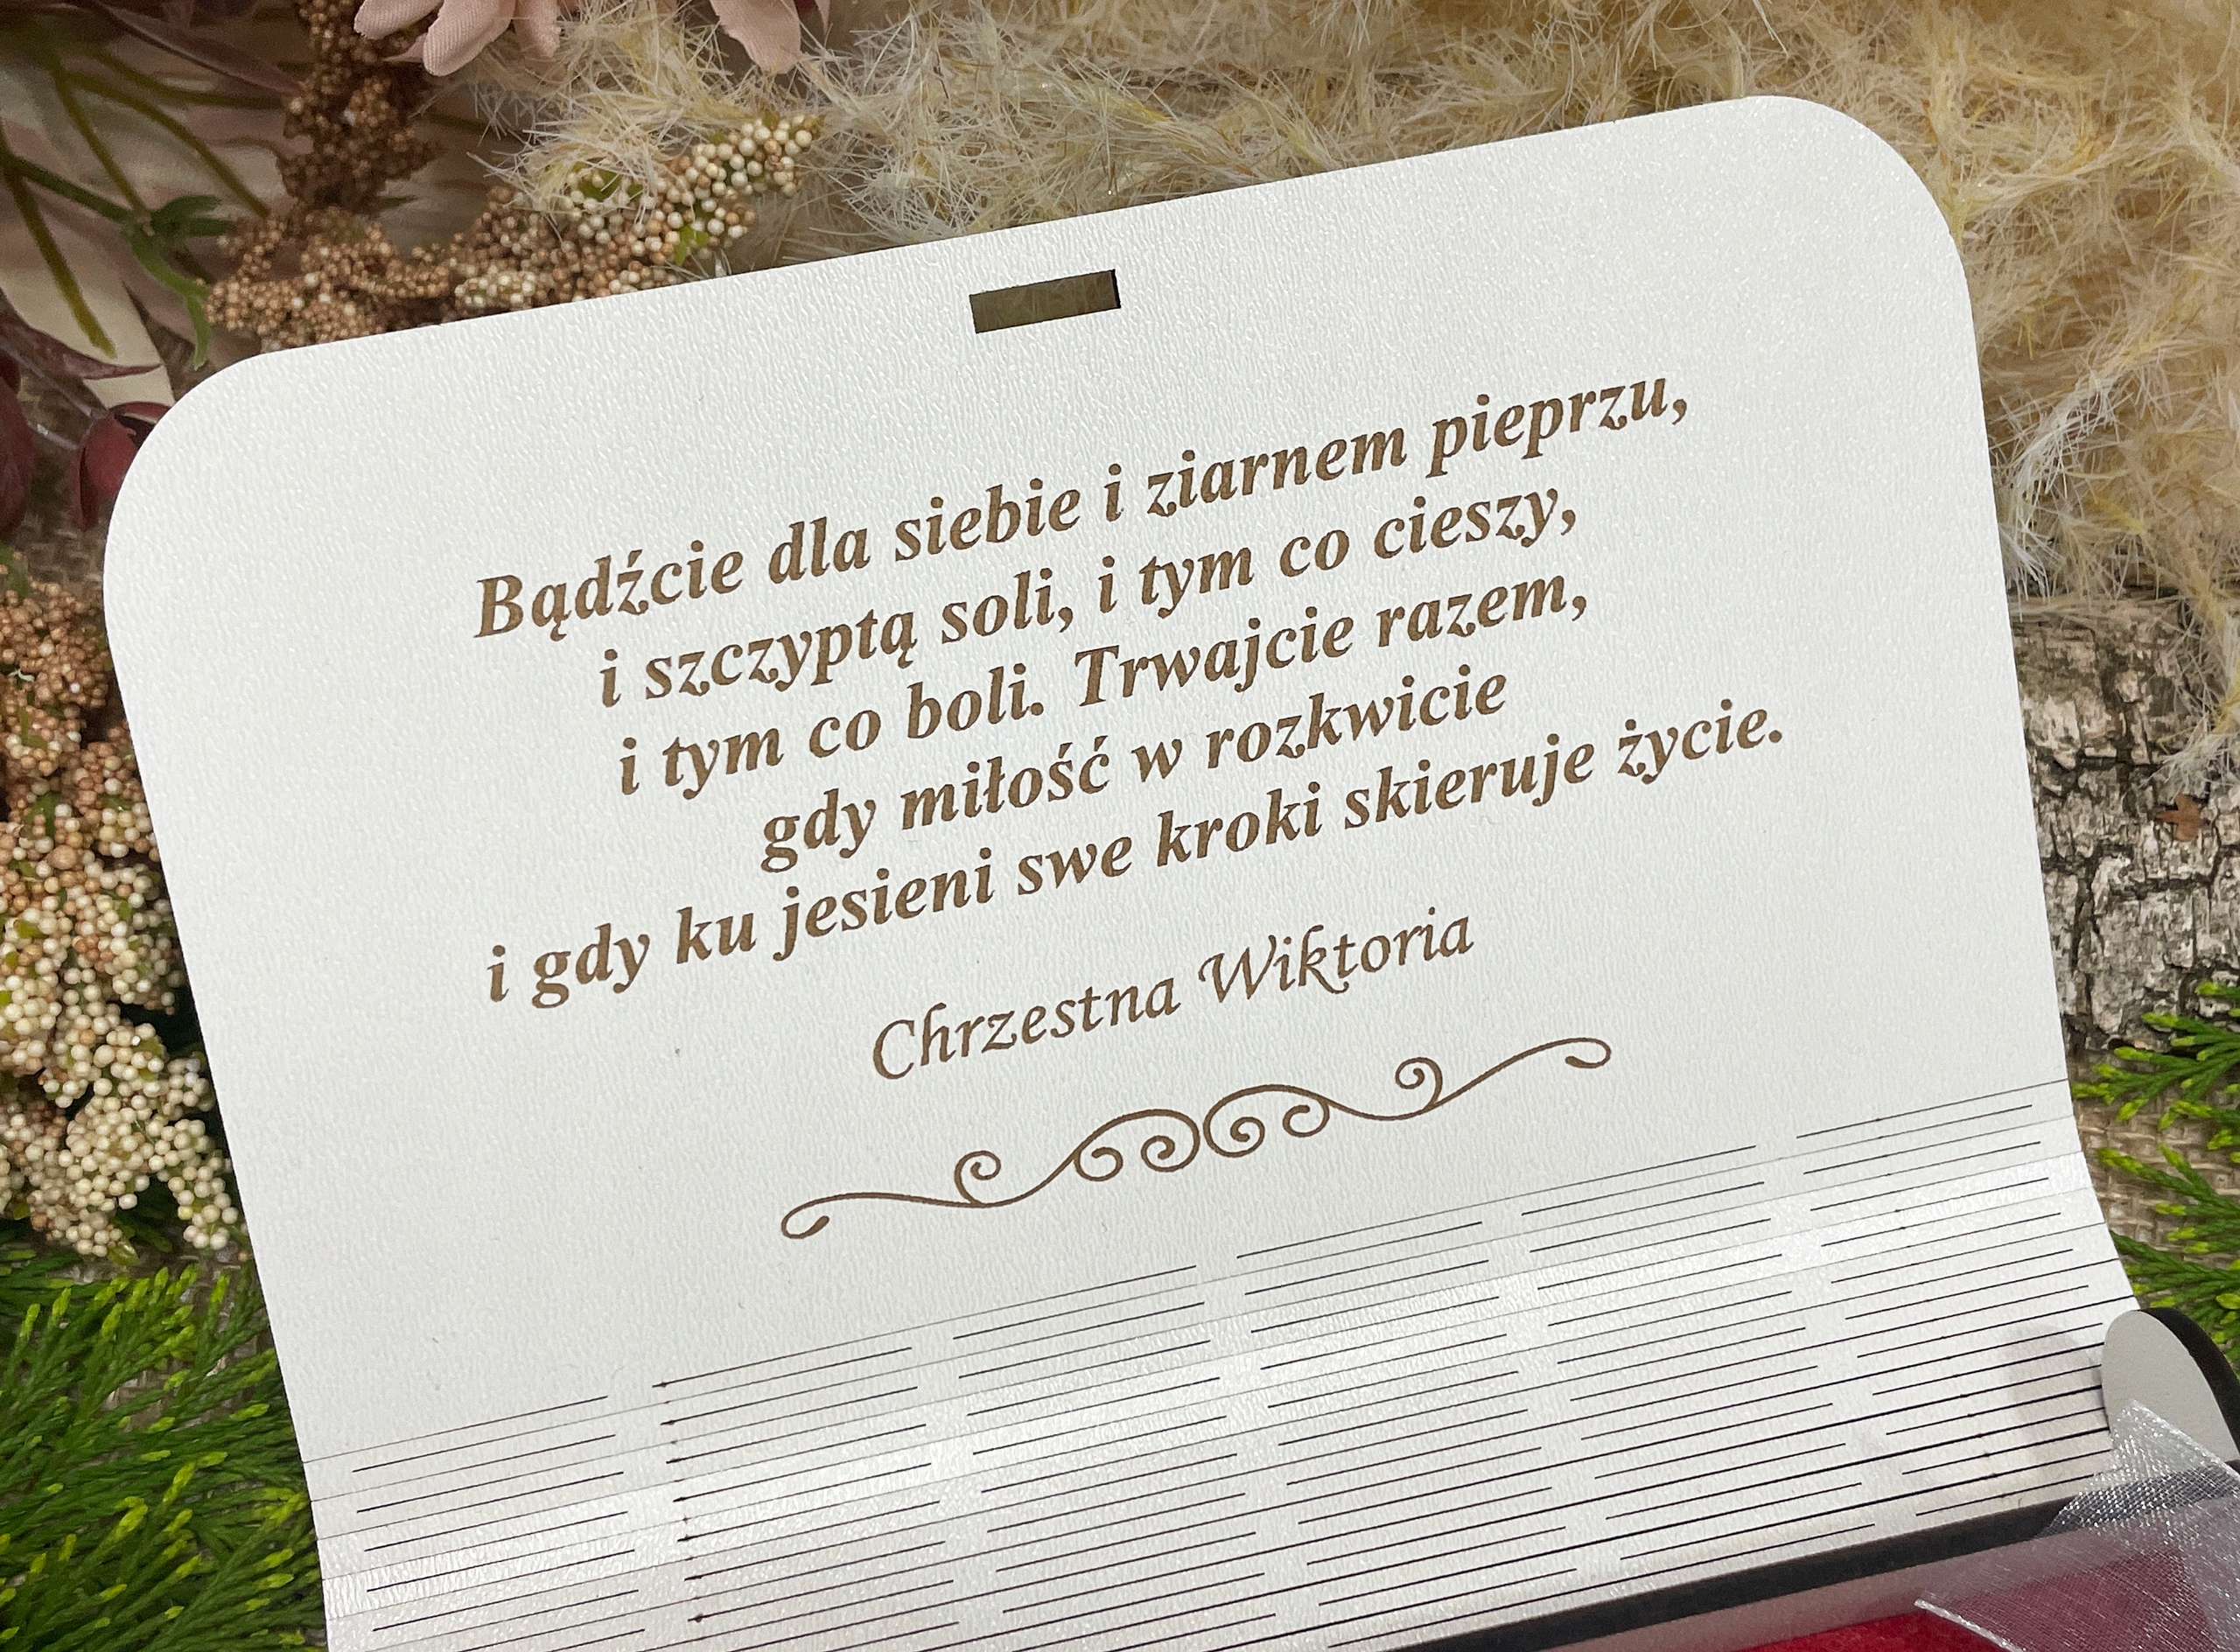 Bądźcie dla siebie i ziarnem pieprzu,
i szczyptą soli, i tym co cieszy,
i tym co boli. Trwajcie razem,
gdy miłość w rozkwicie
i gdy ku jesieni swe kroki skieruje życie.
Chrzestna Wiktoria